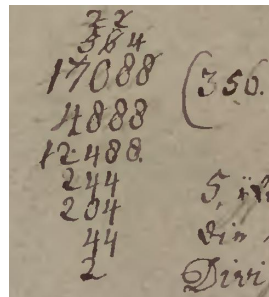 2 2
5 6 4
17088 (356.
4888
12488.
244
204
44
2
5.
din
Divi